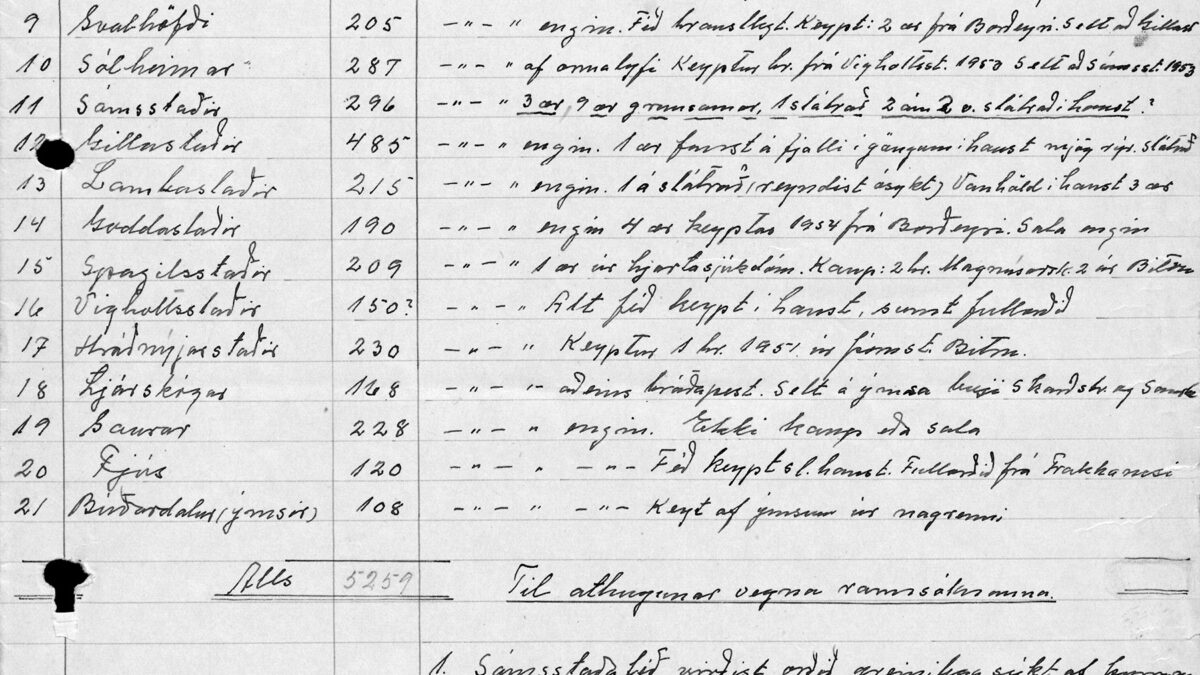 9 Svalhöfði 205 -"- " engin. Féð hraustlegt. Keypt: 2 ær frá Borðeyri. Selt að Gillast
10 Sólheimar 287 -"- " af ormalyfi Keyptur hr. frá Vighottsst. 1953 Selt að Sámsst. 1953
11 Sámsstaðir 296 -"- " 3 ær 9 ær grunsamar, 1 slátrað 2 ám 2 v. slátrað i haust?
12 Gillastaðir 485 -"- " engin. 1 ær fanst á fjalli i göngum i haust mjög rýr. slátrað
13 Lambastaðir 215 -"- " engin. 1 á slátrað (reyndist ósýkt) Vanhöld i haust 3 ær
14 Goddastaðir 190 -"- " engin 4 ær keyptar 1954 frá Borðeyri. Sala engin
15 Spagilsstaðir 209 -"- " 1 ær úr hjartasjúkdóm. Kaup: 2 hr. Magnússk. 2 úr Bitru
16 Vighottsstaðir 150? -"- " Alt féð keypt i haust, sumt fullorðið
17 Hráðnýjarstaðir 230 -"- " Keyptur 1 hr. 1951 úr þomst. Bitru.
18 Ljárskógar 168 -"- " aðeins bráðapest. Selt á ýmsa bæji Skarðstr. og
19 Saurar 228 -"- " engin. Ekki kaup eða sala
20 Fjós 120 -"- " -"- Féð keypt s.l. haust. Fullorðið frá
21 Búðardalur (ýmsir) 108 -"- " -"- Keyt af ýmsum úr nagrenni
Alls 5259 Til athugunar vegna rannsóknanna.
1. Sámsstaða féð virðist orðið greinilega sýkt af